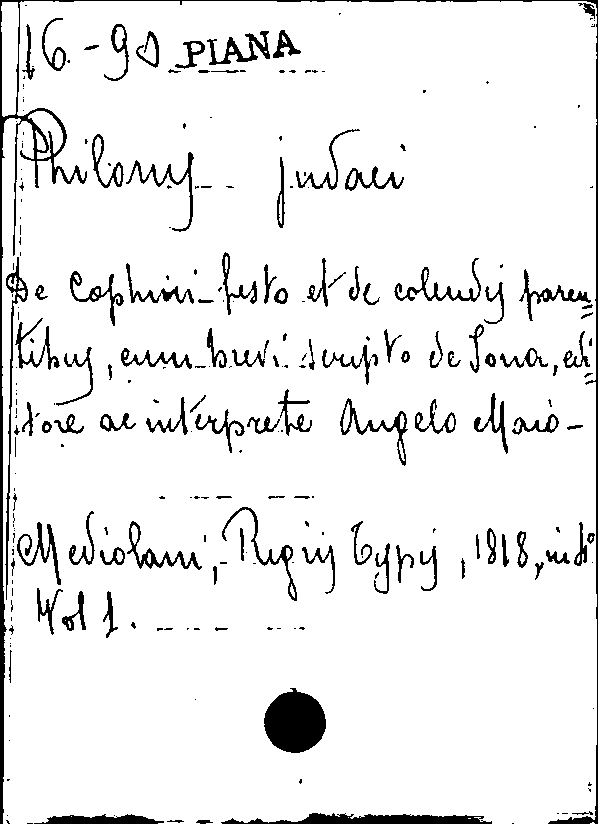 16-9 PIANA
Philonis judaei
De Cophini festo et de colendis paren=
tibus, cum brevi scripto de Jona, edi=
tore ac interprete Angelo Maio-
Mediolani, Regiis Typis, 1818, in
Vol 1.